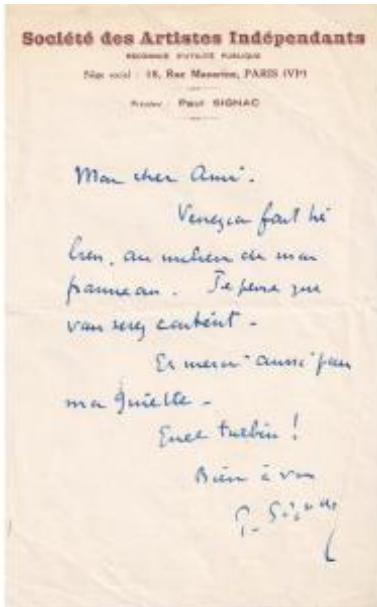 Société des Artistes Indépendants
RECONNUE D'UTILITÉ PUBLIQUE
Siège social : 18, Rue Mazarine, PARIS (VIᵉ)
Président : Paul SIGNAC
Mon cher Ami.
Venezia fait trè
bien, au milieu de mon
panneau. Je pense que
vous serez content -
Et merci aussi pour
ma
Quel turbin !
Bien à vous
P. Signac